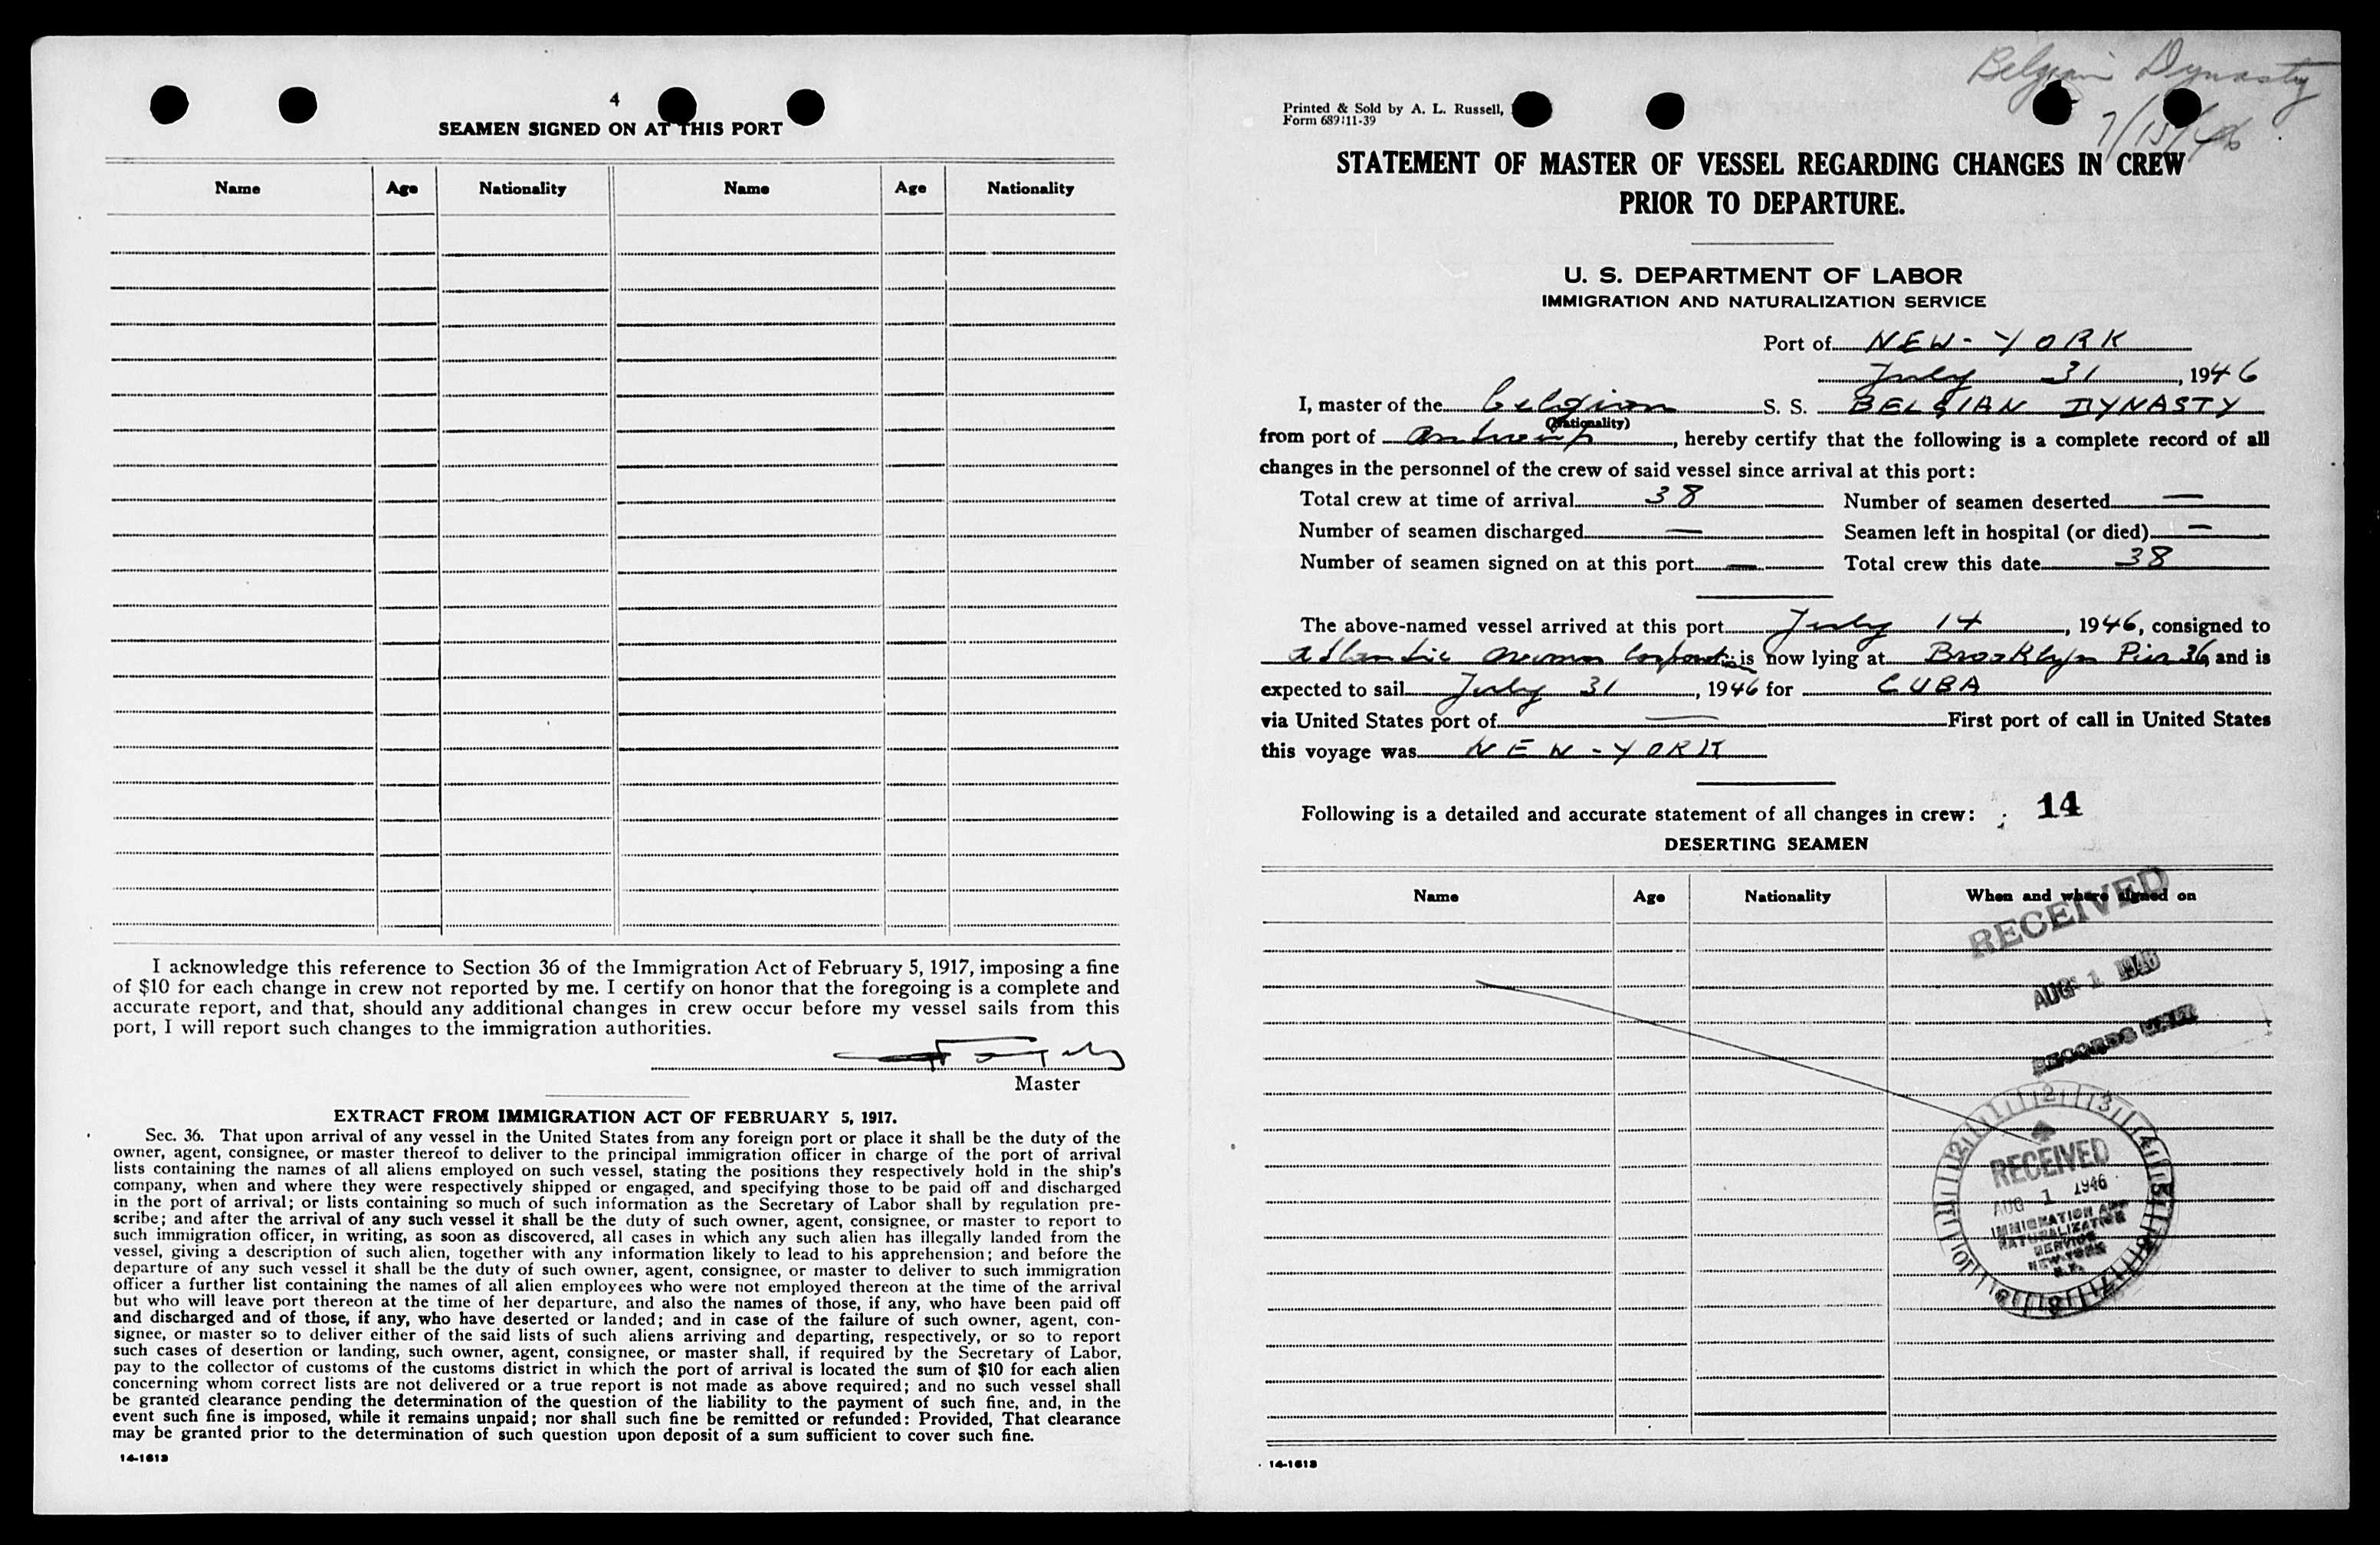 4
SEAMEN SIGNED ON AT THIS PORT
Name Age Nationality Name Age Nationality
I acknowledge this reference to Section 36 of the Immigration Act of February 5, 1917, imposing a fine
of $10 for each change in crew not reported by me. I certify on honor that the foregoing is a complete and
accurate report, and that, should any additional changes in crew occur before my vessel sails from this
port, I will report such changes to the immigration authorities.
Master
EXTRACT FROM IMMIGRATION ACT OF FEBRUARY 5, 1917.
Sec. 36. That upon arrival of any vessel in the United States from any foreign port or place it shall be the duty of the
owner, agent, consignee, or master thereof to deliver to the principal immigration officer in charge of the port of arrival
lists containing the names of all aliens employed on such vessel, stating the positions they respectively hold in the ship's
company, when and where they were respectively shipped or engaged, and specifying those to be paid off and discharged
in the port of arrival; or lists containing so much of such information as the Secretary of Labor shall by regulation pre-
scribe; and after the arrival of any such vessel it shall be the duty of such owner, agent, consignee, or master to report to
such immigration officer, in writing, as soon as discovered, all cases in which any such alien has illegally landed from the
vessel, giving a description of such alien, together with any information likely to lead to his apprehension; and before the
departure of any such vessel it shall be the duty of such owner, agent, consignee, or master to deliver to such immigration
officer a further list containing the names of all alien employees who were not employed thereon at the time of the arrival
but who will leave port thereon at the time of her departure, and also the names of those, if any, who have been paid off
and discharged and of those, if any, who have deserted or landed; and in case of the failure of such owner, agent, con-
signee, or master so to deliver either of the said lists of such aliens arriving and departing, respectively, or so to report
such cases of desertion or landing, such owner, agent, consignee, or master shall, if required by the Secretary of Labor,
pay to the collector of customs of the customs district in which the port of arrival is located the sum of $10 for each alien
concerning whom correct lists are not delivered or a true report is not made as above required; and no such vessel shall
be granted clearance pending the determination of the question of the liability to the payment of such fine, and, in the
event such fine is imposed, while it remains unpaid; nor shall such fine be remitted or refunded: Provided, That clearance
may be granted prior to the determination of such question upon deposit of a sum sufficient to cover such fine.
14-1613
Belgian Dynasty
7/15/46
Printed & Sold by A. L. Russell,
Form 689:11-39
STATEMENT OF MASTER OF VESSEL REGARDING CHANGES IN CREW
PRIOR TO DEPARTURE.
U. S. DEPARTMENT OF LABOR
IMMIGRATION AND NATURALIZATION SERVICE
Port of NEW-YORK
July 31, 1946
I, master of the belgian S. S. BELGIAN DYNASTY
(Nationality)
from port of Antwerp, hereby certify that the following is a complete record of all
changes in the personnel of the crew of said vessel since arrival at this port:
Total crew at time of arrival 38 Number of seamen deserted —
Number of seamen discharged — Seamen left in hospital (or died) —
Number of seamen signed on at this port — Total crew this date 38
The above-named vessel arrived at this port July 14, 1946, consigned to
Atlantic Overseas Corporation is now lying at Brooklyn Pier 36 and is
expected to sail July 31, 1946 for CUBA
via United States port of — First port of call in United States
this voyage was NEW-YORK
Following is a detailed and accurate statement of all changes in crew: 14
DESERTING SEAMEN
Name Age Nationality When and where signed on
RECEIVED
AUG 1 1946
RECORDS UNIT
12 1 2 3 4 5 6 7 8 9 10 11
RECEIVED
AUG 1 1946
IMMIGRATION AND
NATURALIZATION
SERVICE
NEW YORK
N.Y.
14-1613